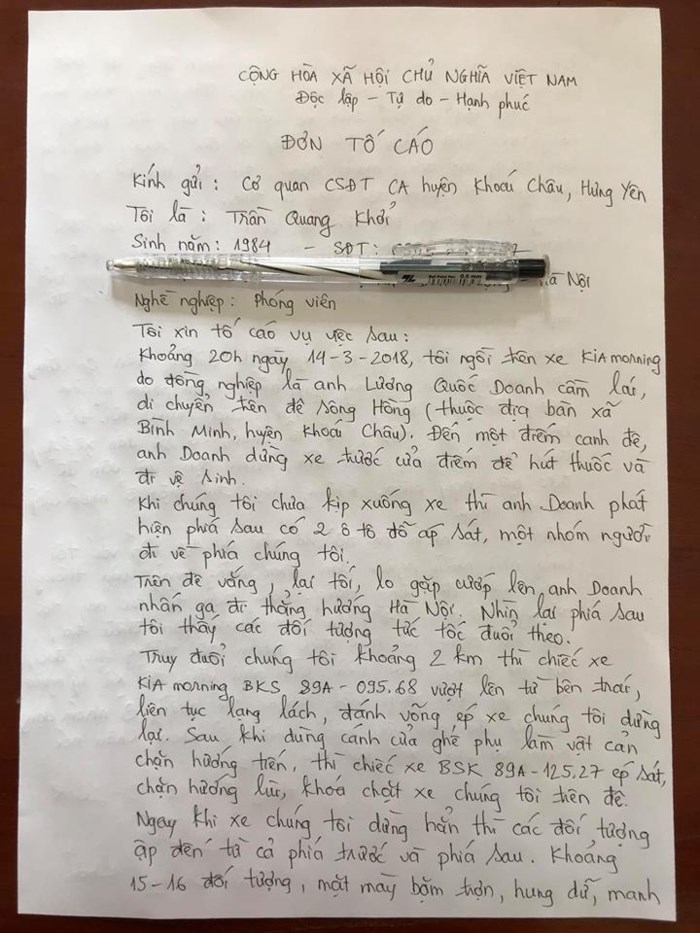 CỘNG HÒA XÃ HỘI CHỦ NGHĨA VIỆT NAM
Độc lập - Tự do - Hạnh phúc
ĐƠN TỐ CÁO
Kính gửi: Cơ quan CSĐT CA huyện Khoái Châu, Hưng Yên
Tôi là: Trần Quang Khởi
Sinh năm: 1984 - SĐT:
Hà Nội
Nghề nghiệp: Phóng viên
Tôi xin tố cáo vụ việc sau:
Khoảng 20h ngày 14-3-2018, tôi ngồi trên xe KIA morning
do đồng nghiệp là anh Lương Quốc Doanh cầm lái,
di chuyển trên đê Sông Hồng (thuộc địa bàn xã
Bình Minh, huyện Khoái Châu). Đến một điếm canh đê,
anh Doanh dừng xe trước cửa điếm để hút thuốc và
đi vệ sinh.
Khi chúng tôi chưa kịp xuống xe thì anh Doanh phát
hiện phía sau có 2 ô tô đỗ áp sát, một nhóm người
đi về phía chúng tôi.
Trên đê vắng, lại tối, lo gặp cướp lên anh Doanh
nhấn ga đi thẳng hướng Hà Nội. Nhìn lại phía sau
tôi thấy các đối tượng tức tốc đuổi theo.
Truy đuổi chúng tôi khoảng 2 km thì chiếc xe
KIA morning BKS 89A - 095.68 vượt lên từ bên trái,
liên tục lạng lách, đánh võng ép xe chúng tôi dừng
lại. Sau khi dùng cánh cửa ghế phụ làm vật cản
chặn hướng tiến, thì chiếc xe BSK 89A-125.27 ép sát,
chặn hướng lùi, khóa chặt xe chúng tôi trên đê.
Ngay khi xe chúng tôi dừng hẳn thì các đối tượng
ập đến từ cả phía trước và phía sau. Khoảng
15-16 đối tượng, mặt mày bặm trợn, hung dữ, manh